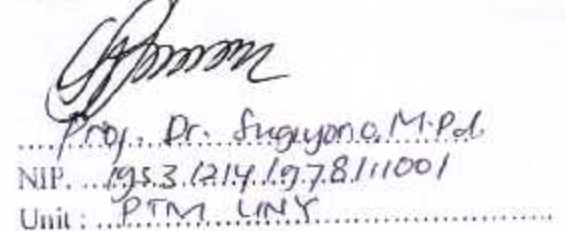 Prof. Dr. Sugiyono, M.Pd.
NIP. 19531214 197811001
Unit : PTM UNY